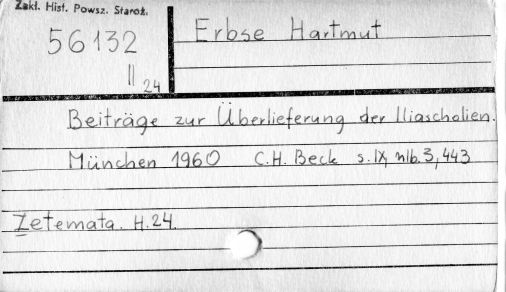 Zakł. Hist. Powsz. Staroż.
56132
II 24
Erbse Hartmut
Beiträge zur Überlieferung der Iliascholien.
München 1960 C.H. Beck s. IX, nlb. 3, 443
Zetemata. H. 24.